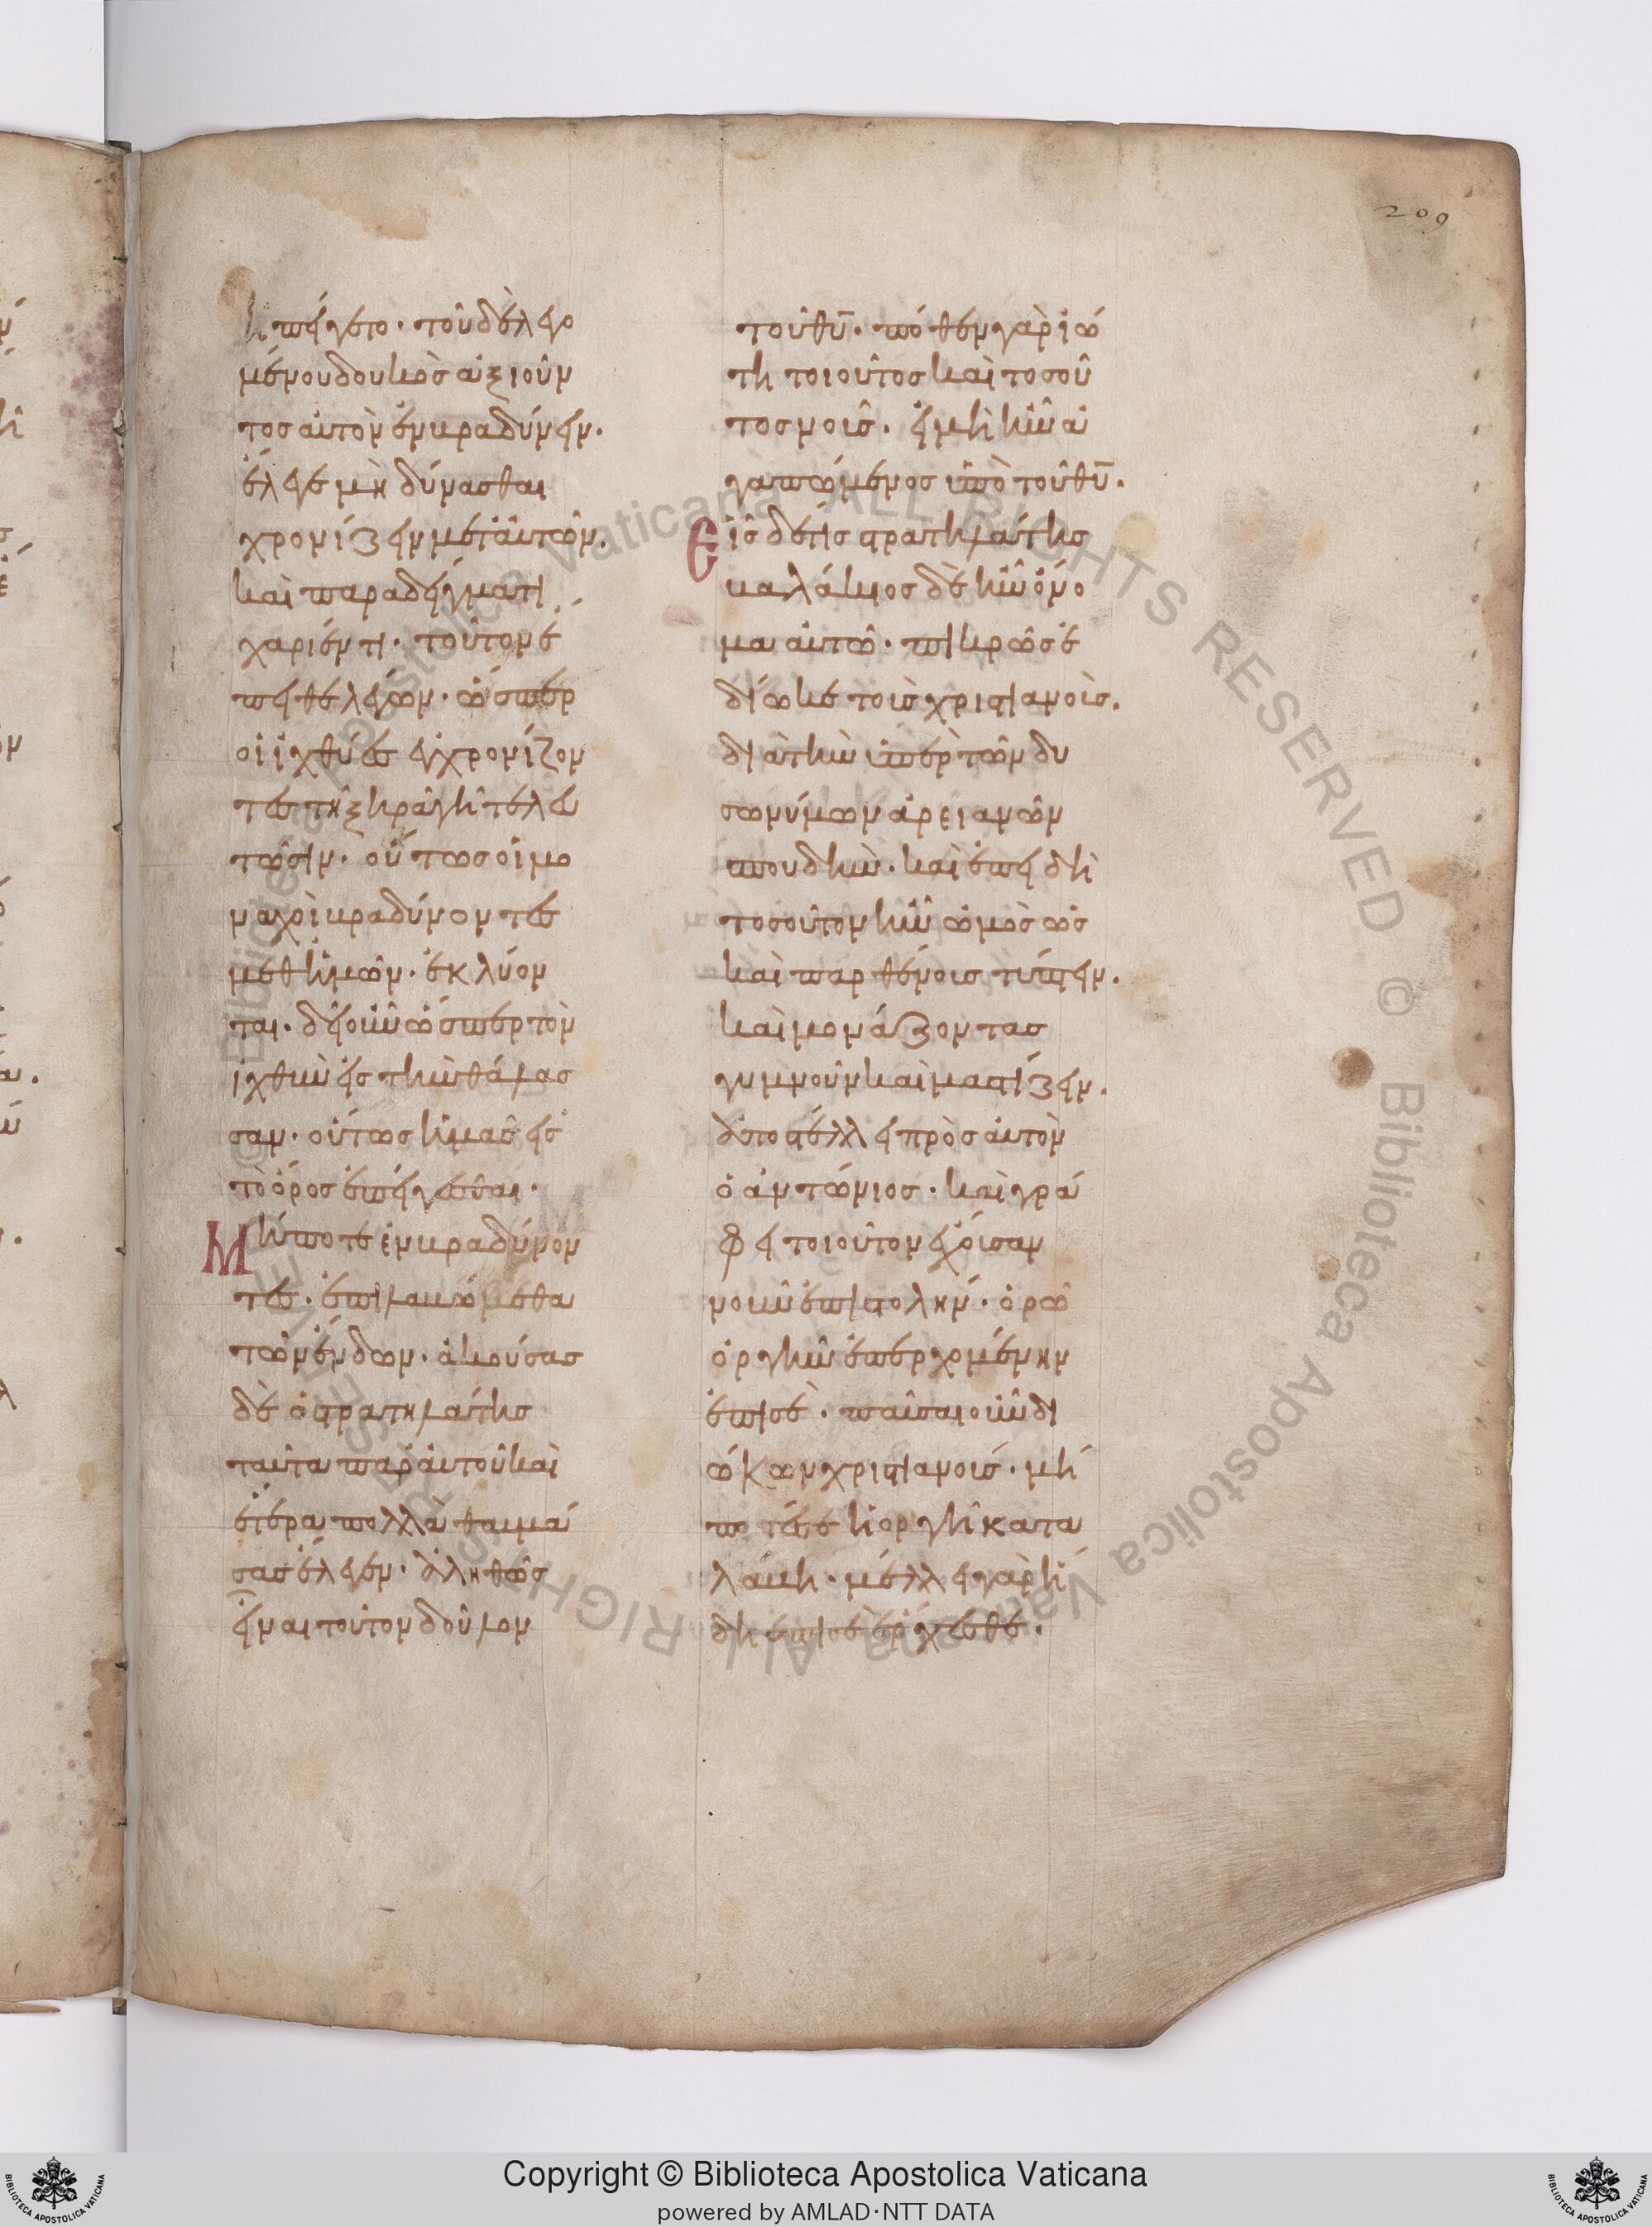 209
ἠπείγετο· τοῦ δὲ λεγο
μένου δουκὸς ἀξιοῦν
τος αὐτὸν ἐνβραδύνειν·
ἔλεγε μὴ δύνασθαι
χρονίζειν μετ' αὐτῶν·
καὶ παραδείγματι
χαρίεντι· τοῦτον ἔ
πειθε λέγων· ὥσπερ
οἱ ἰχθύες ἐγχρονίζον
τες τῆ ξηρᾶ γῆ τελευ
τῶσιν· οὕτως οἱ μο
ναχοὶ βραδύνοντες
μεθ' ἡμῶν· ἐκλύον
ται· δεῖ οὖν ὥσπερ τὸν
ἰχθὺν εἰς τὴν θάλασ
σαν· οὕτως ἡμᾶς εἰς
τὸ ὄρος ἐπείγεσθαι·
Μήποτε ἐνβραδύνον
τες· ἐπιλαθώμεθα
τῶν ἔνδων· ἀκούσας
δὲ ὁ στρατηλάτης
ταῦτα παρ' αὐτοῦ καὶ
ἕτερα πολλὰ θαυμά
σας ἔλεγεν· ἀληθῶς
εἶναι τοῦτον δοῦλον
τοῦ θυ̅· πόθεν γὰρ ἰδιώ
τη τοιοῦτος καὶ τοσοῦ
τος νοῦς· εἰ μὴ ἦν ἀ
γαπώμενος ὑπὸ τοῦ θυ̅·
Εἷς δέ τις στρατηλάτης
βαλάκιος δὲ ἦν ὄνο
μα αὐτῶ· πικρῶς ἐ
δίωκε τοὺς χριστιανούς·
διὰ τὴν ὑπὲρ τῶν δυ
σωνύμων ἀρειανῶν
σπουδήν· καὶ ἐπειδὴ
τοσοῦτον ἦν ὠμὸς ὡς
καὶ παρθένους τύπτειν·
καὶ μονάζοντας
γυμνοῦν καὶ μαστίζειν·
ἀποστέλλει πρὸς αὐτὸν
ὁ ἀντώνιος· καὶ γρά
φει τοιοῦτον ἔχουσαν
νοῦν ἐπιστολήν· ὁρῶ
ὀργὴν ἐπερχομένην
ἐπὶ σέ· παῦσαι οὖν δι
ώκων χριστιανούς· μή
ποτέ σε ἡ ὀργὴ κατα
λάβη· μέλλει γὰρ ἤ
δη ἐπὶ σὲ ἔρχεσθαι·
Copyright © Biblioteca Apostolica Vaticana
powered by AMLAD·NTT DATA